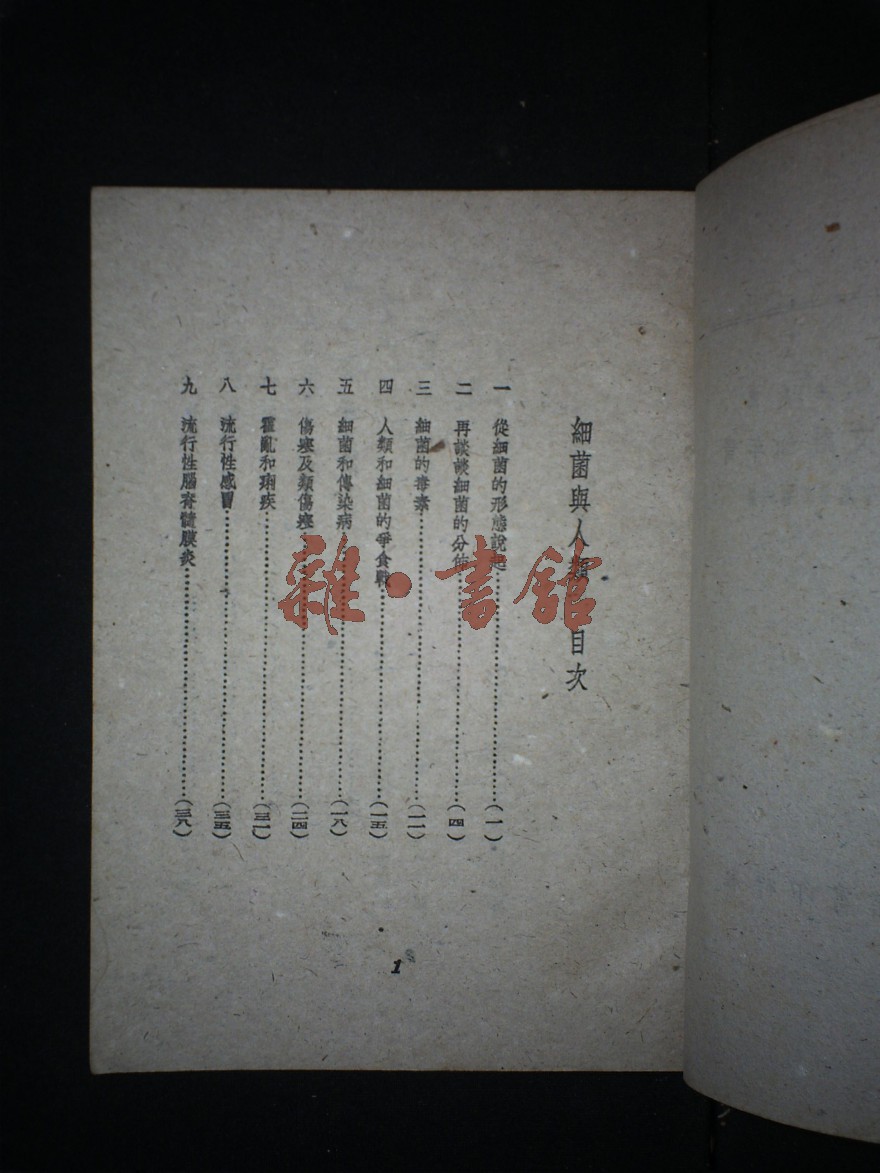 細菌與人類 目次
一 從細菌的形態說起……(一)
二 再談談細菌的分佈……(四)
三 細菌的毒素……(一一)
四 人類和細菌的爭食戰……(一五)
五 細菌和傳染病……(一八)
六 傷寒及類傷寒……(二四)
七 霍亂和痢疾……(三一)
八 流行性感冒……(三五)
九 流行性腦脊髓膜炎……(三八)
1
雜·書館